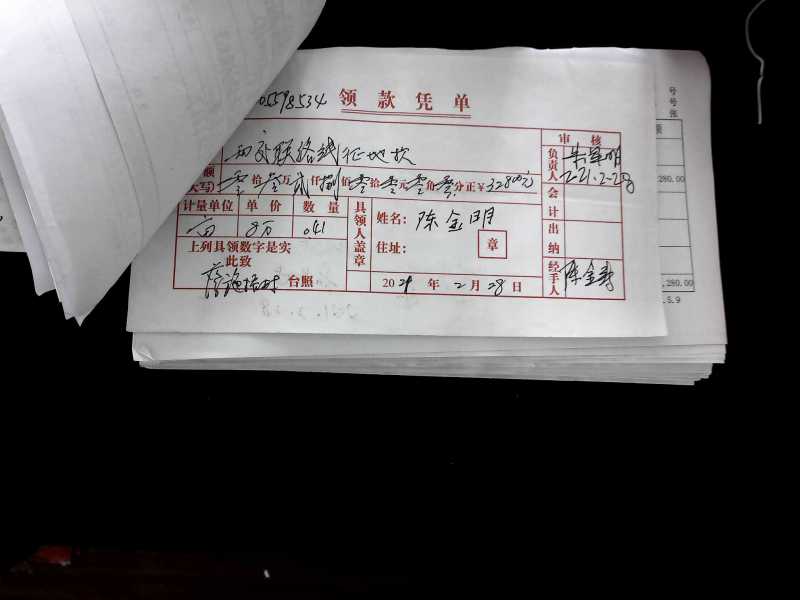 05598534 领款凭单
联络线征地款
审核
额
大写) 零拾叁万贰仟捌佰零拾零元零角零分正￥32800元
负责人
2021.2.28
计量单位 单价 数量
亩 8万 0.41
具领人盖章
姓名: 陈金明
住址: 章
会计
出纳
上列具领数字是实
此致
台照
2021年2月28日
经手人 陈金寿
号
号
张
280.00
,280.00
.5.9